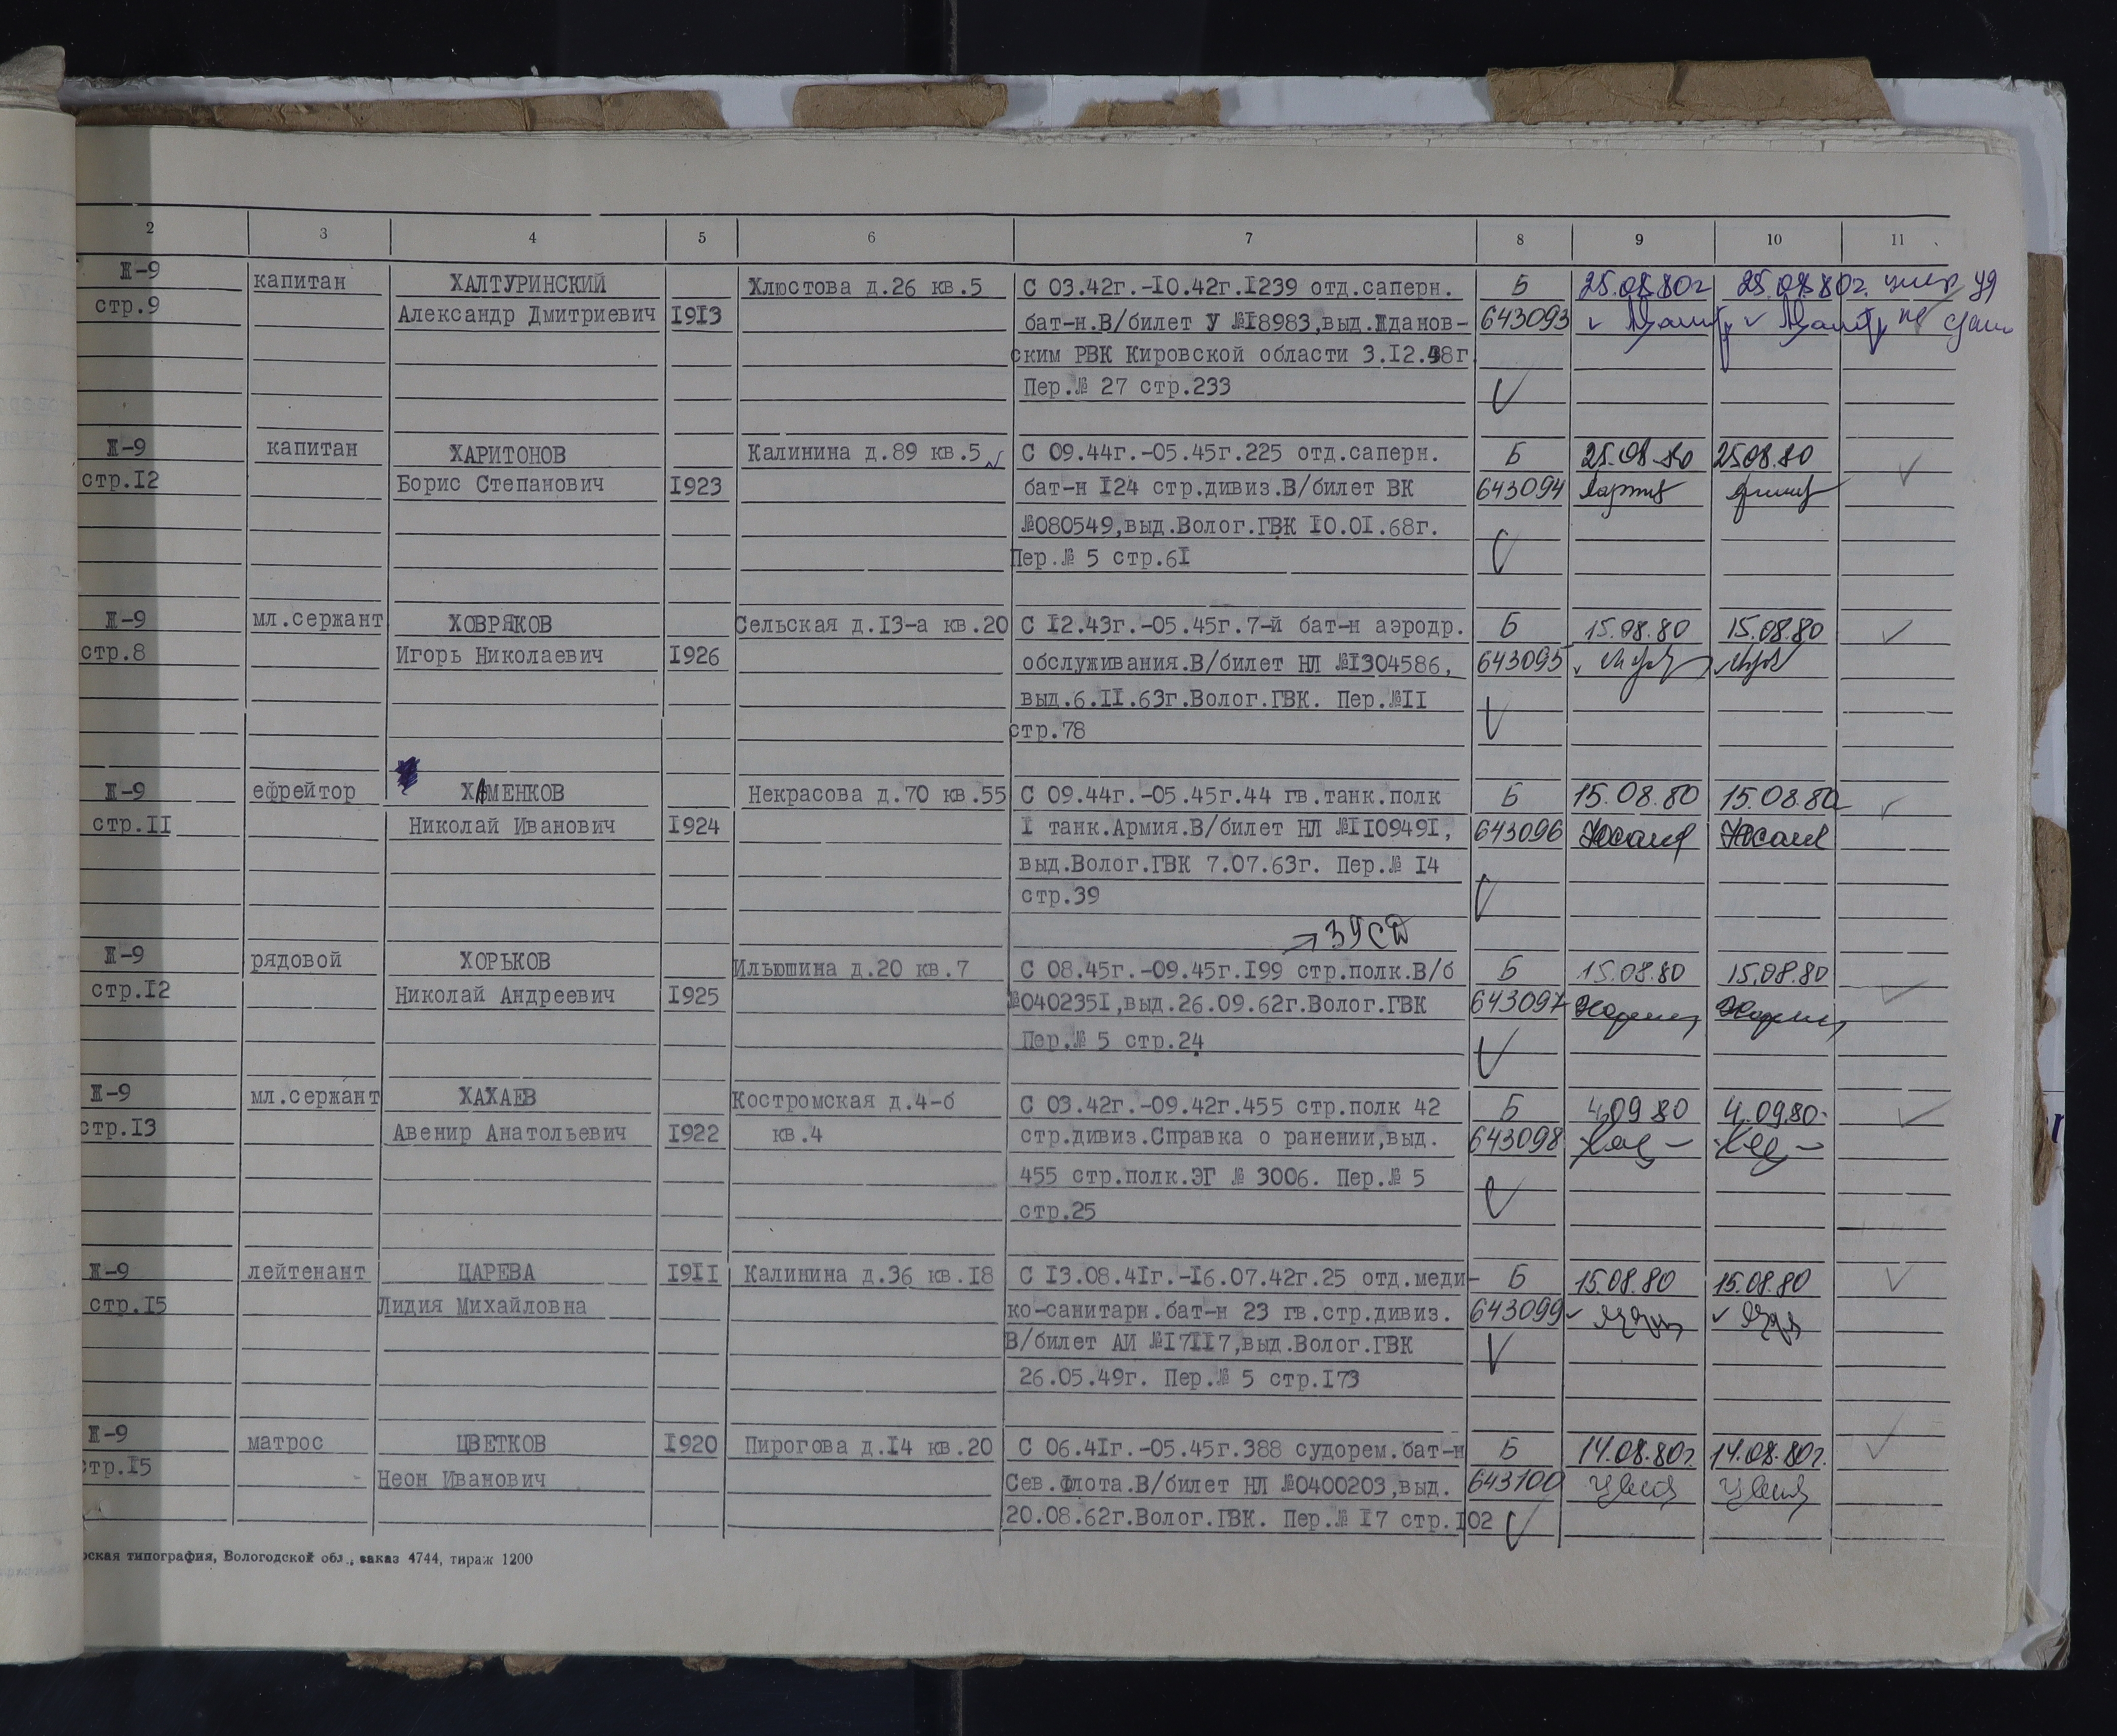 2 3 4 5 6 7 8 9 10 11
Ж-9 капитан ХАЛТУРИНСКИЙ Хлюстова д.26 кв.5 С 03.42г.-I0.42г.I239 отд.саперн. Б 25.08.80г 25.08.80г.
стр.9 Александр Дмитриевич I9I3 бат-н.В/билет У №I8983,выд.Жданов- 643093
ским РВК Кировской области 3.I2.48г.
Пер.№ 27 стр.233
Ж-9 капитан ХАРИТОНОВ Калинина д.89 кв.5 С 09.44г.-05.45г.225 отд.саперн. Б 25.08.80 25 08.80
стр.I2 Борис Степанович I923 бат-н I24 стр.дивиз.В/билет ВК 643094
№080549,выд.Волог.ГВК I0.0I.68г.
Пер.№ 5 стр.6I
Ж-9 мл.сержант ХОВРЯКОВ Сельская д.I3-а кв.20 С I2.43г.-05.45г.7-й бат-н аэродр. Б 15.08.80 15.08.80
стр.8 Игорь Николаевич I926 обслуживания.В/билет НЛ №I304586, 643095
выд.6.II.63г.Волог.ГВК. Пер.№II
стр.78
Ж-9 ефрейтор ХАМЕНКОВ Некрасова д.70 кв.55 С 09.44г.-05.45г.44 гв.танк.полк Б 15.08.80 15.08.80
стр.II Николай Иванович I924 I танк.Армия.В/билет НЛ №II0949I, 643096
выд.Волог.ГВК 7.07.63г. Пер.№ I4
стр.39
Ж-9 рядовой ХОРЬКОВ Ильюшина д.20 кв.7 С 08.45г.-09.45г.I99 стр.полк.В/б Б 15.08.80 15.08.80
стр.I2 Николай Андреевич I925 №040235I,выд.26.09.62г.Волог.ГВК 643097
Пер.№ 5 стр.24
Ж-9 мл.сержант ХАХАЕВ Костромская д.4-б С 03.42г.-09.42г.455 стр.полк 42 Б 4.09 80 4.09.80.
стр.I3 Авенир Анатольевич I922 кв.4 стр.дивиз.Справка о ранении,выд. 643098
455 стр.полк.ЭГ № 3006. Пер.№ 5
стр.25
Ж-9 лейтенант ЦАРЕВА I9II Калинина д.36 кв.I8 С I3.08.4Iг.-I6.07.42г.25 отд.меди- Б 15.08.80 15.08.80
стр.I5 Лидия Михайловна ко-санитарн.бат-н 23 гв.стр.дивиз. 643099
В/билет АИ №I7II7,выд.Волог.ГВК
26.05.49г. Пер.№ 5 стр.I73
Ж-9 матрос ЦВЕТКОВ I920 Пирогова д.I4 кв.20 С 06.4Iг.-05.45г.388 судорем.бат-н Б 14.08.80г. 14.08.80г.
стр.I5 Неон Иванович Сев.Флота.В/билет НЛ №0400203,выд. 643100
20.08.62г.Волог.ГВК. Пер.№ I7 стр.I02
типография, Вологодской обл., заказ 4744, тираж 1200